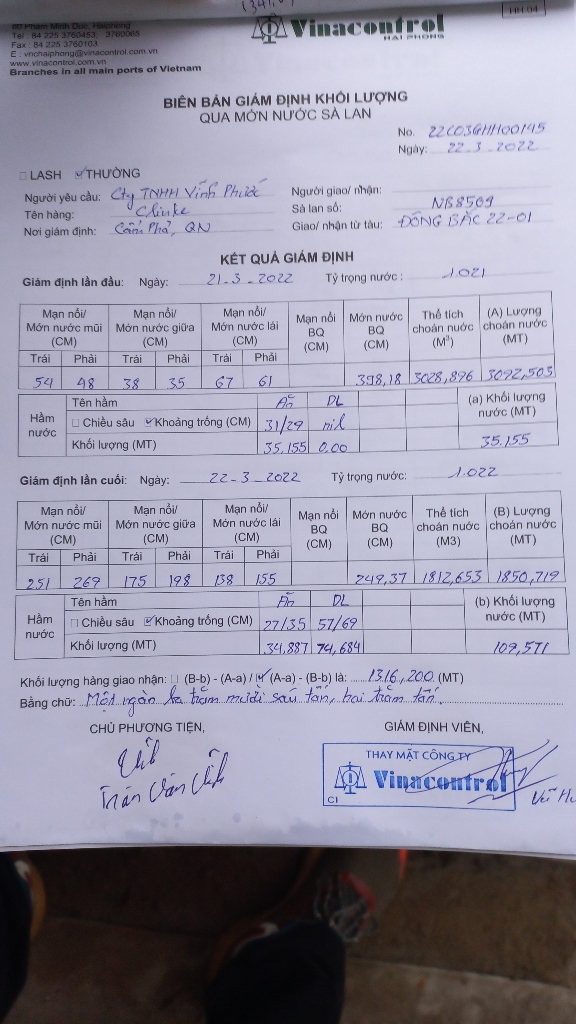 HH 04
Phạm Minh Đức, Haiphong
Tel : 84 225 3760453, 3760065
Fax : 84 225 3760103
E : vnchaiphong@vinacontrol.com.vn
www.vinacontrol.com.vn
Branches in all main ports of Vietnam
Vinacontrol
HAI PHONG
BIÊN BẢN GIÁM ĐỊNH KHỐI LƯỢNG
QUA MỚN NƯỚC SÀ LAN
No. 22C03GHH00145
Ngày: 22-3-2022
LASH THƯỜNG
Người yêu cầu: Cty TNHH Vĩnh Phước
Người giao/ nhận:
Tên hàng: Clinke
Sà lan số: NB8569
Nơi giám định: Cẩm Phả, QN
Giao/ nhận từ tàu: ĐÔNG BẮC 22-01
KẾT QUẢ GIÁM ĐỊNH
Giám định lần đầu: Ngày: 21-3-2022 Tỷ trọng nước: 1.021
Mạn nổi/ Mớn nước mũi (CM) Mạn nổi/ Mớn nước giữa (CM) Mạn nổi/ Mớn nước lái (CM) Mạn nổi BQ (CM) Mớn nước BQ (CM) Thể tích choán nước (M³) (A) Lượng choán nước (MT)
Trái Phải Trái Phải Trái Phải
54 48 38 35 67 61 398,18 3028,896 3092,503
Hầm nước Tên hầm AĐ DL (a) Khối lượng nước (MT)
Chiều sâu Khoảng trống (CM) 31/29 nil
Khối lượng (MT) 35.155 0.00 35.155
Giám định lần cuối: Ngày: 22-3-2022 Tỷ trọng nước: 1.022
Mạn nổi/ Mớn nước mũi (CM) Mạn nổi/ Mớn nước giữa (CM) Mạn nổi/ Mớn nước lái (CM) Mạn nổi BQ (CM) Mớn nước BQ (CM) Thể tích choán nước (M3) (B) Lượng choán nước (MT)
Trái Phải Trái Phải Trái Phải
251 269 175 198 138 155 249,37 1812,653 1850,719
Hầm nước Tên hầm DL (b) Khối lượng nước (MT)
Chiều sâu Khoảng trống (CM) 27/35 57/69
Khối lượng (MT) 34,887 74,684 109,571
Khối lượng hàng giao nhận: (B-b) - (A-a) / (A-a) - (B-b) là: 1316,200 (MT)
Bằng chữ: Một ngàn ba trăm mười sáu tấn, hai trăm tấn.
CHỦ PHƯƠNG TIỆN,
GIÁM ĐỊNH VIÊN,
Trần Văn
THAY MẶT CÔNG TY
Vinacontrol
CI